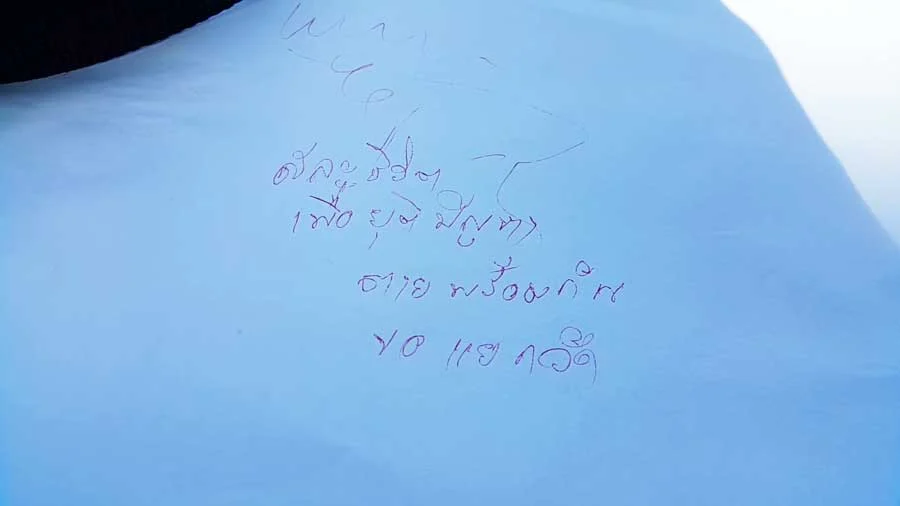 สละชีวิต
เพื่อ ยุติ ปัญหา
ตาย พร้อมกัน
ขอ แยกวัด